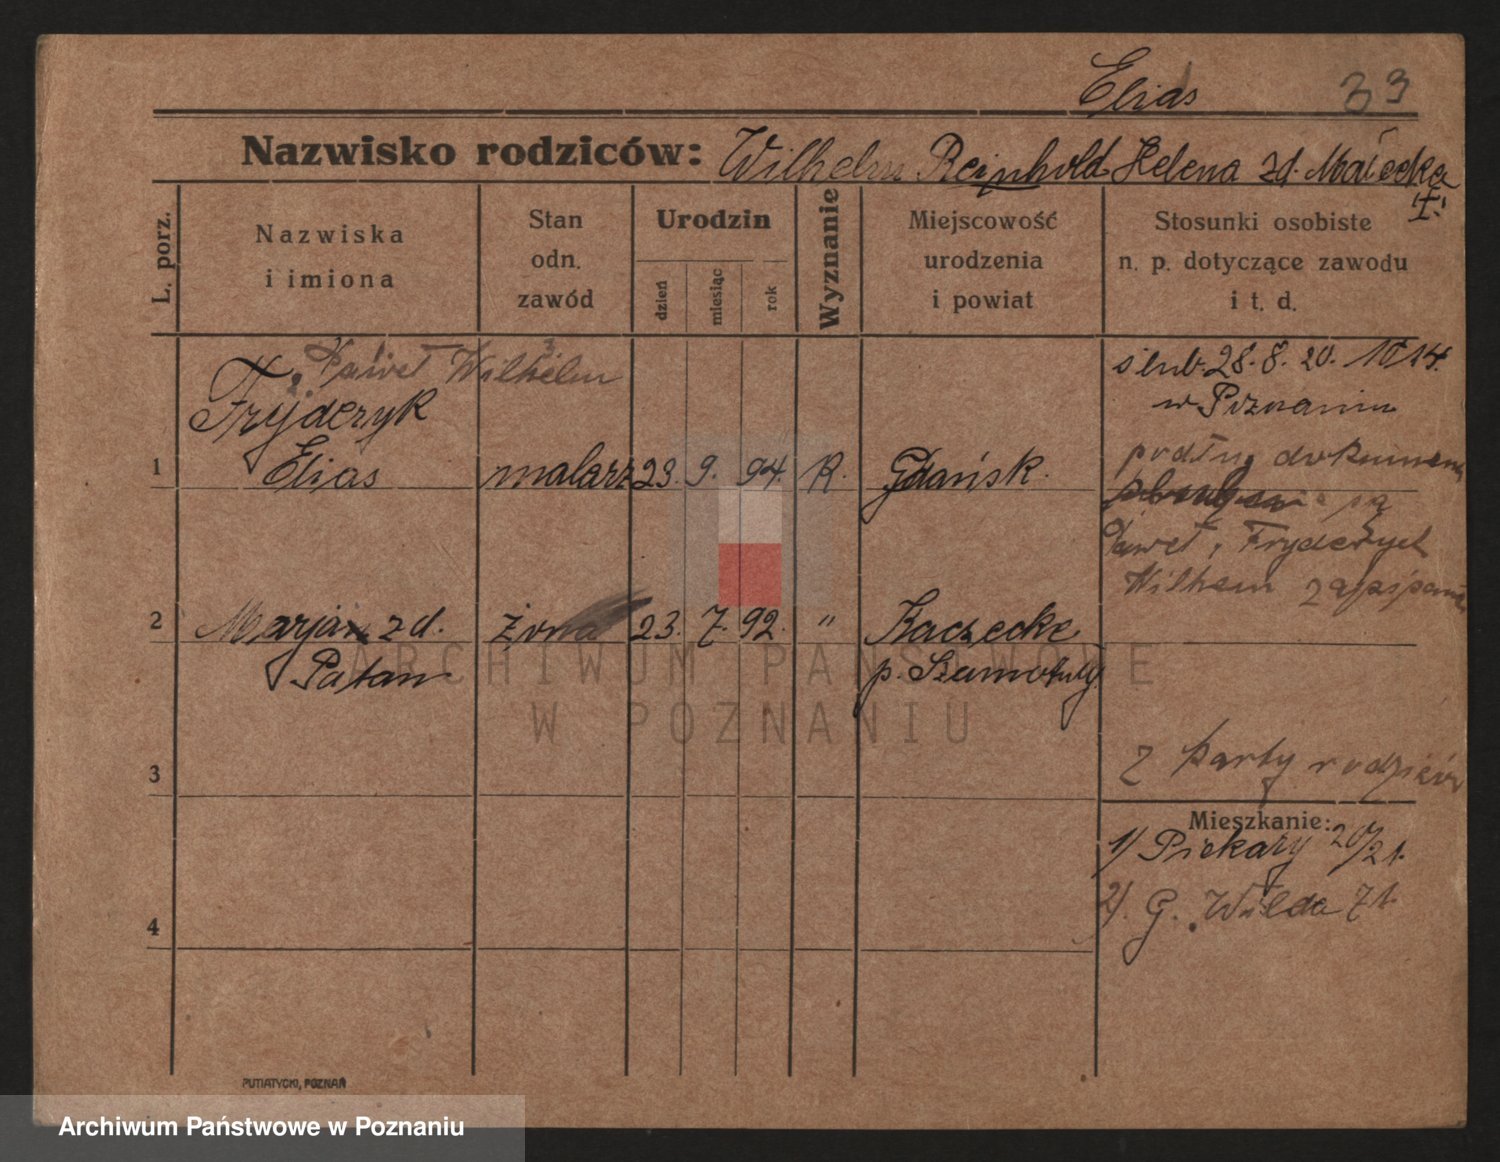 Elias 33
Nazwisko rodziców: Wilhelm Reinhold Helena zd. Małecka
I.
L. porz.
Nazwiska
i imiona
Stan
odn.
zawód
Urodzin
dzień
miesiąc
rok
Wyznanie
Miejscowość
urodzenia
i powiat
Stosunki osobiste
n. p. dotyczące zawodu
i t. d.
Paweł Wilhelm
Fryderyk
1 Elias malarz 23. 9. 94. K. Gdańsk.
ślub. 28. 8. 20.
w Poznaniu
podług dokumentu
są
Paweł, Fryderyk
Wilhem zapisani
2 Marja zd. żona 23. 7. 92. "
Patan p. Szamotuły
3 z karty rodziców
Mieszkanie:
1) Piekary 20/21.
2). G. Wilda 71.
4
PUTIATYCKI, POZNAŃ
ARCHIWUM PAŃSTWOWE
W POZNANIU
Archiwum Państwowe w Poznaniu